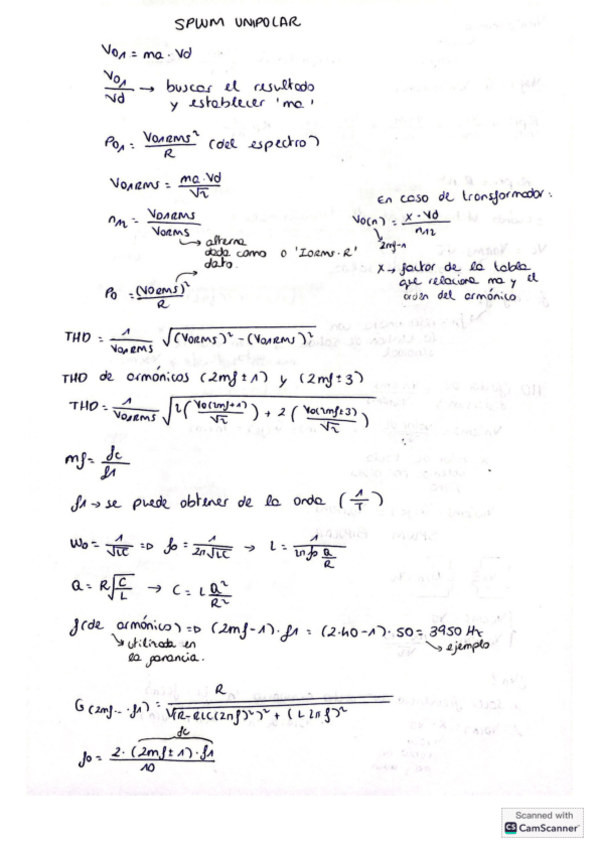 SPWM UNIPOLAR
Vo1 = ma · Vd
Vo1/Vd → buscar el resultado
y establecer 'ma'
Po1 = Vo1RMS²/R (del espectro)
Vo1RMS = ma·Vd/√2
En caso de transformador:
n12 = Vo1RMS/VoRMS
Vo(n) = x · Vd/n12
2mf-1
alterna
dada como o 'IoRMS·R'
dato.
x → factor de la tabla
que relaciona ma y el
orden del armónico
Po = (VoRMS)²/R
THD = 1/Vo1RMS √((VoRMS)² - (Vo1RMS)²)
THD de armónicos (2mf ± 1) y (2mf ± 3)
THD = 1/Vo1RMS √(2(Vo(2mf±1)/√2) + 2(Vo(2mf±3)/√2))
mf = fc/f1
f1 → se puede obtener de la onda (1/T)
Wo = 1/√LC => fo = 1/2π√LC → L = 1/(2πfo Q/R)
Q = R√(C/L) → C = L Q²/R²
f(de armónico) => (2mf-1)·f1 = (2·40-1)·50 = 3950 Hz
utilizada en
la ganancia.
ejemplo
G(2mf-··f1) = R/√((R-RLC(2πf)²)² + (L2πf)²)
fc
fo = 2·(2mf±1)·f1/10
Scanned with
CS CamScanner